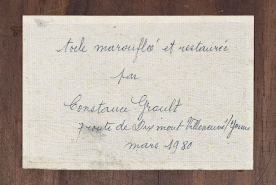 toile marouflée et restaurée
par
Constance Grault
7 route de Dixmont Villeneuve s/Yonne
mars 1980